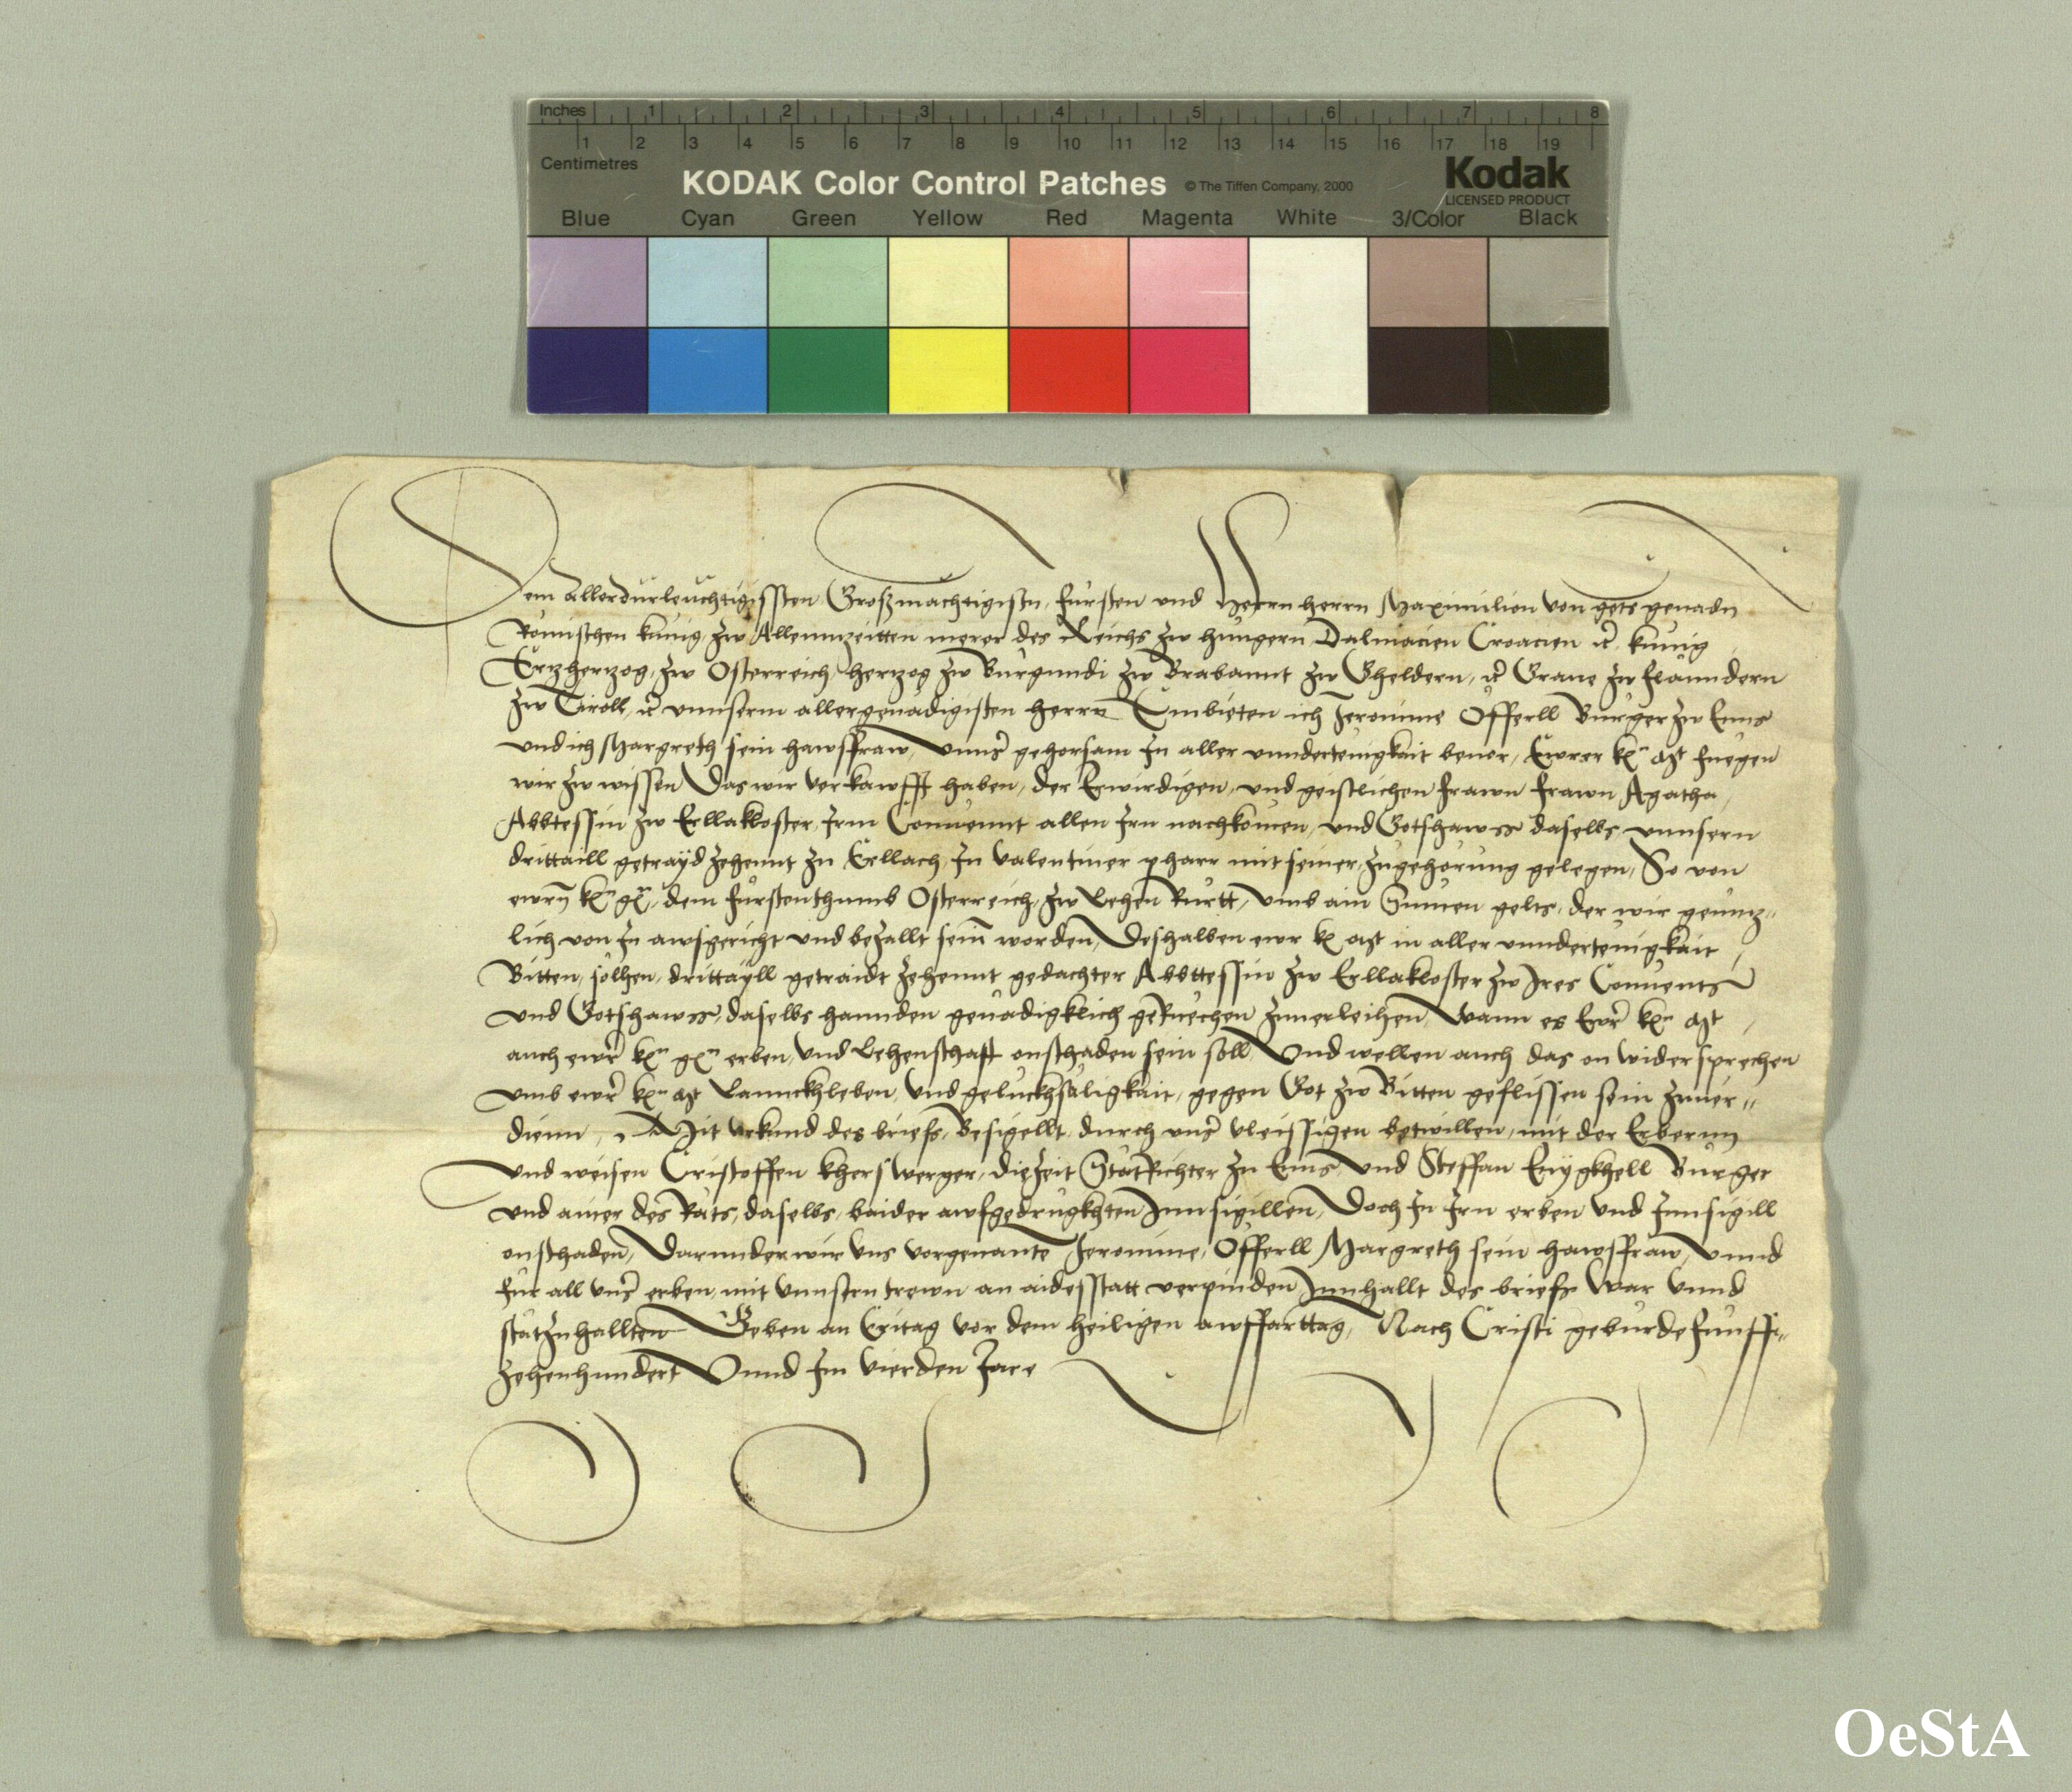 Inches 1 2 3 4 5 6 7 8
1 2 3 4 5 6 7 8 9 10 11 12 13 14 15 16 17 18 19
Centimetres
KODAK Color Control Patches © The Tiffen Company, 2000 Kodak
LICENSED PRODUCT
Blue Cyan Green Yellow Red Magenta White 3/Color Black
Dem allerdurleuchtigissten Großmachtigistn, fursten und Herrn herrn Maximilian von gots genadn
Römischen kunig, zw Allennzeitten merer des Reichs zw hungern Dalmacien Croacien ꝛc̃ kunig
Ertzhertzog, zw Osterreich, hertzog zw Burgundi zw Brabannt zw Gheldern, ꝛc̃ Grave zw flanndern
zw Tiroll, ꝛc̃ unnserm allergenadigisten herrn Embieten ich Jeronime Öfferll Burger zw Enns
und ich Margreth sein hawsfraw, unnsr̃ gehorsam in aller unndertenigkait bevor, Ewrer kn̄ fuegen
wir zw wissen Das wir verkawfft haben, der Erwirdigen, und geistlichen frawn frawn Agatha,
Abbtessin zw Erllakloster, Irm Convennt allen Irn nachkomen, und Gotshawss daselbs unnsern
drittaill getrayd zehennt zu Erllach, In Valentiner pharr mit seiner, zugehorung gelegen, So von
dem furstenthumb Osterreich, zw Lehen Rurtt, umb ain Sumen gelts, der wir gennz„
lich von In awsgericht und bezallt sein worden, Deshalben ewr in aller unndertenigkait
Bitten, solhen, drittayll getraidt zehennt gedachter Abbttessin zw Erllakloster zw Ires Convents
und Gotshawss, daselbs hannden genadigklich geRuechen zuverleihen, Wann es Ewr̃
auch ewr̃ erben, und Lehenschafft onschaden sein soll, Und wellen auch das on widersprechen
umb ewr̃ Lannckleben, und geluckhsaligkait, gegen Got zw Bitten geflissen sein zuver„
dienn, Mit Urkund des briefs, Besigellt, durch unsr̃ vleissigen betwillen, mit der Erberm
und weisen Cristoffen kherswerger, die Zeit StatRichter zu Enns, und Steffan Burger
und ainer des Rats, daselbs, baider awfgedrugkhten Innsigillen, Doch In Irn erben und Innsigill
onschaden, Darunder wir uns vorgenante Jeronime, Öfferll Margreth sein hawsfraw, unnd
fur all unsr̃ erben, mit unnsern trewn an aidesstatt verpinden Innhallt des briefs War unnd
statzuhallten Geben an Eritag vor dem heiligen awffarttag, Nach Cristi geburde funff„
zehenhundert Unnd Im vierden Jare
OeStA